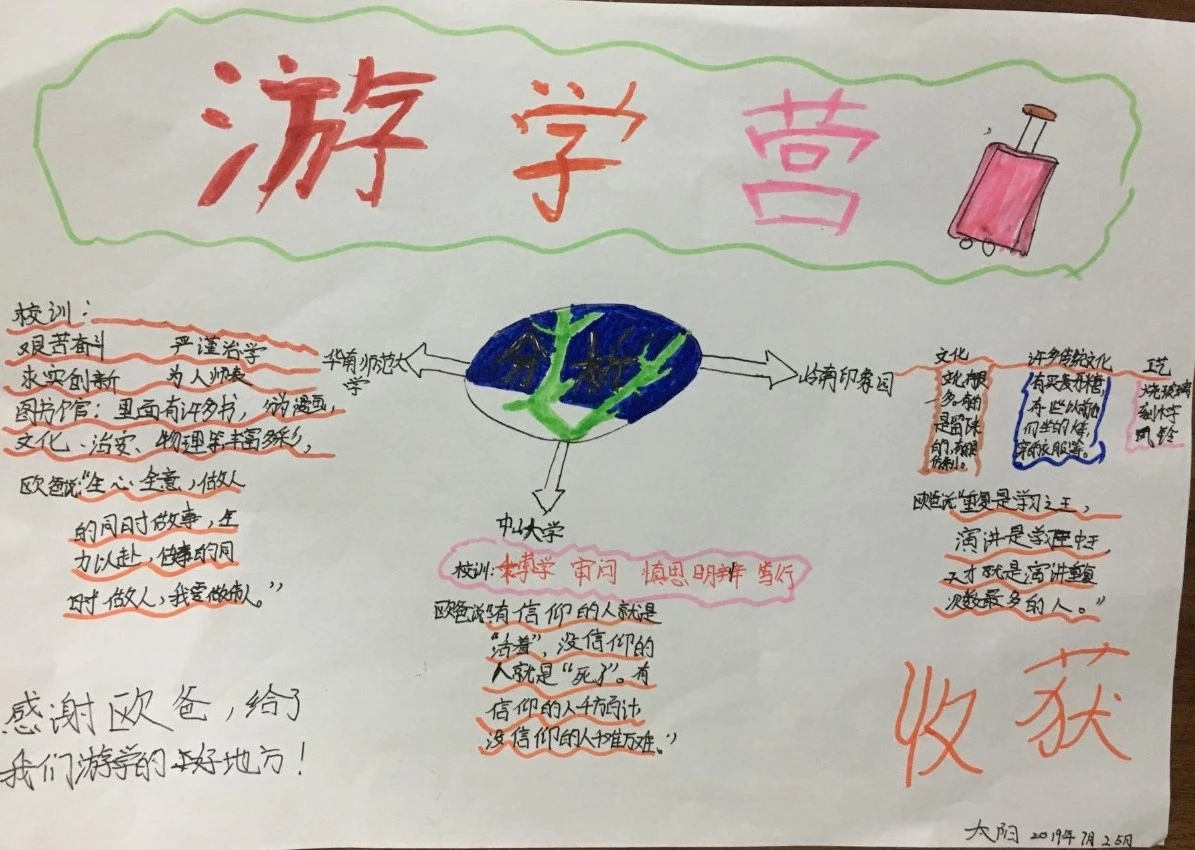 游学营
校训：
艰苦奋斗 严谨治学
求实创新 为人师表
图书馆：里面有许多书，分为漫画，
文化、治实、物理等丰富多彩，
欧爸说“全心全意，做人
的同时做事，全
力以赴，做事的同
时做人，我要做伟人。”
华南师范大
学
分析
岭南印象园
中山大学
校训：博学 审问 慎思 明辨 笃行
欧爸说“有信仰的人就是
“活着”，没信仰的
人就是“死了”。有
信仰的人千方百计
没信仰的人千难万难。”
文化
是留下来
许多传统文化
有买麦芽糖，
有些以前他
们坐的轿，
穿的衣服等。
工艺
烧玻璃
刻木字
风铃
欧爸说“重复是学习之王，
演讲是学习王中王，
天才就是演讲重复
次数最多的人。”
感谢欧爸，给了
我们游学的好地方！
收获
太阳 2019年7月25日